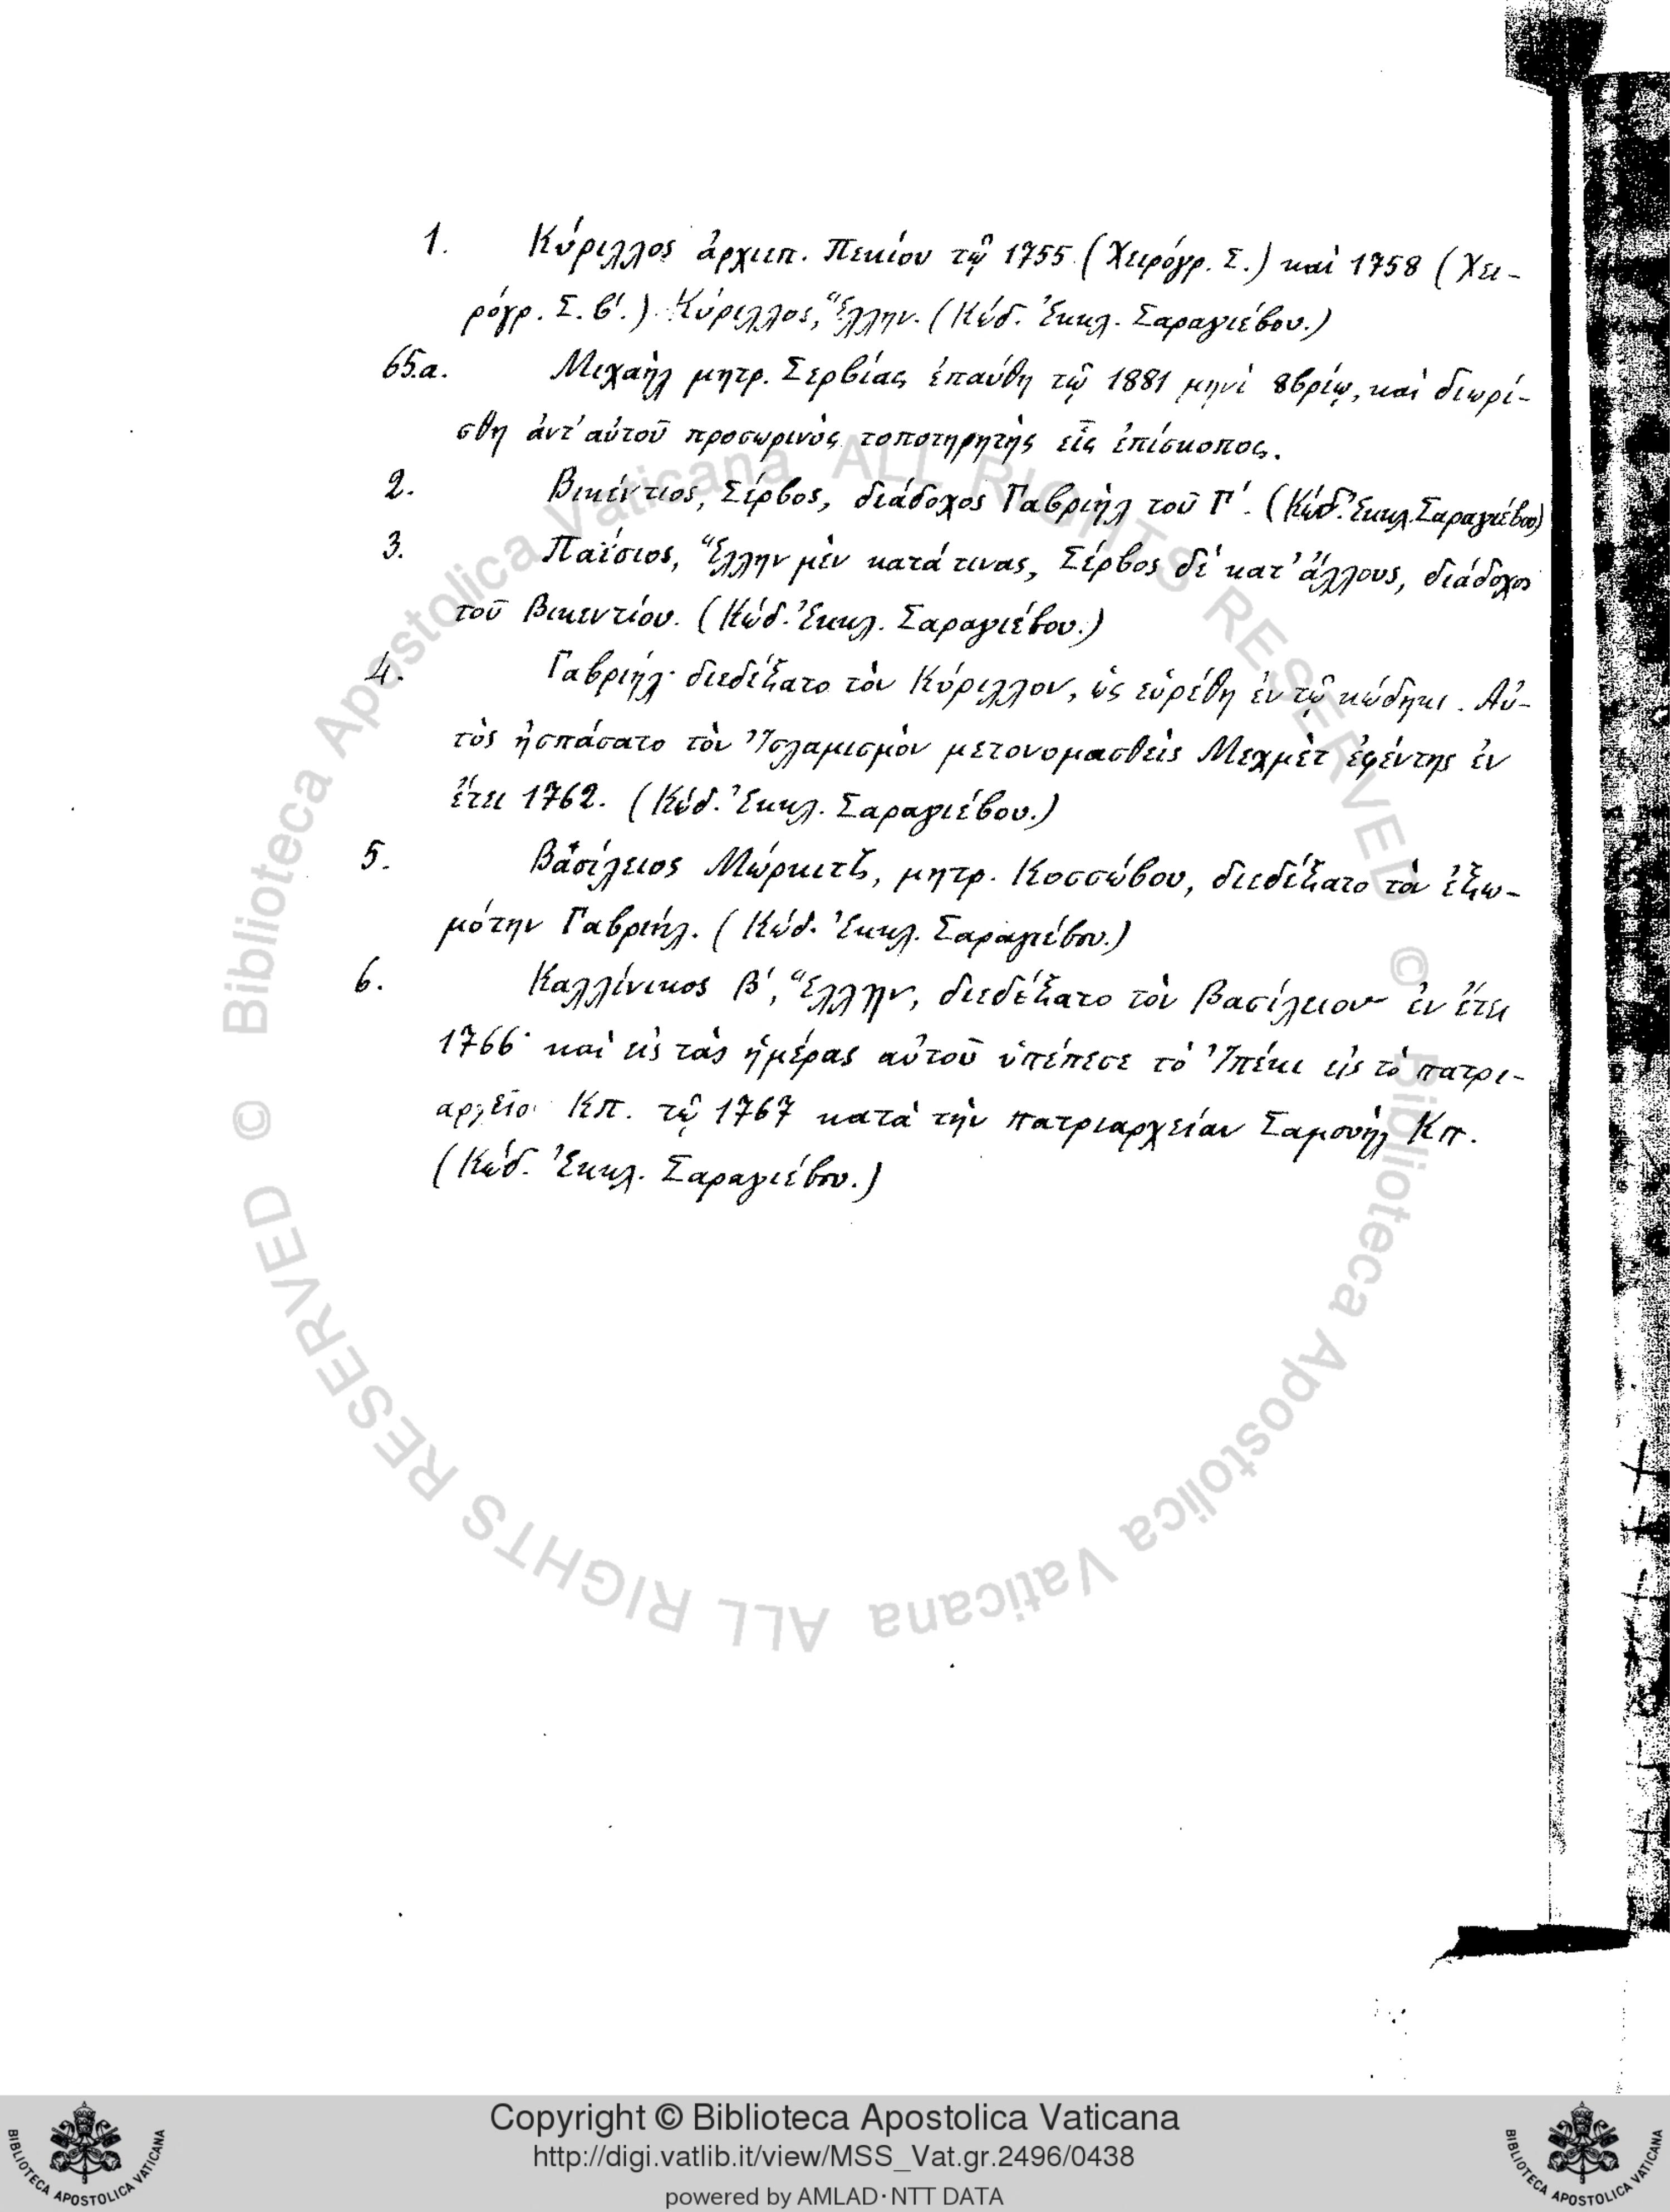 1. Κύριλλος ἀρχιεπ. Πεκίου τῷ 1755 (Χειρόγρ. Σ.) καὶ 1758 (Χει-
ρόγρ. Σ. β΄.) Κύριλλος, Ἕλλην. (Κώδ. Ἐκκλ. Σαραγιέβου.)
65.α. Μιχαὴλ μητρ. Σερβίας ἐπαύθη τῷ 1881 μηνὶ 8βρίῳ, καὶ διωρί-
σθη ἀντ' αὐτοῦ προσωρινὸς τοποτηρητὴς εἷς ἐπίσκοπος.
2. Βικέντιος, Σέρβος, διάδοχος Γαβριὴλ τοῦ Γ΄. (Κώδ. Ἐκκλ. Σαραγιέβου)
3. Παΐσιος, Ἕλλην μὲν κατά τινας, Σέρβος δὲ κατ' ἄλλους, διάδοχος
τοῦ Βικεντίου. (Κώδ. Ἐκκλ. Σαραγιέβου.)
4. Γαβριήλ· διεδέξατο τὸν Κύριλλον, ὡς εὑρέθη ἐν τῷ κώδηκι. Αὐ-
τὸς ἠσπάσατο τὸν Ἰσλαμισμὸν μετονομασθεὶς Μεχμὲτ ἐφέντης ἐν
ἔτει 1762. (Κώδ. Ἐκκλ. Σαραγιέβου.)
5. Βασίλειος Μώρκιτζ, μητρ. Κοσσώβου, διεδέξατο τὸν ἐξω-
μότην Γαβριήλ. (Κώδ. Ἐκκλ. Σαραγιέβου.)
6. Καλλίνικος Β΄, Ἕλλην, διεδέξατο τὸν Βασίλειον ἐν ἔτει
1766· καὶ εἰς τὰς ἡμέρας αὐτοῦ ὑπέπεσε τὸ Ἰπέκι εἰς τὸ πατρι-
αρχεῖο Κπ. τῷ 1767 κατὰ τὴν πατριαρχείαν Σαμουὴλ Κπ.
(Κώδ. Ἐκκλ. Σαραγιέβου.)
© Biblioteca Apostolica Vaticana ALL RIGHTS RESERVED
© Biblioteca Apostolica Vaticana ALL RIGHTS RESERVED
Copyright © Biblioteca Apostolica Vaticana
http://digi.vatlib.it/view/MSS_Vat.gr.2496/0438
powered by AMLAD·NTT DATA
BIBLIOTECA APOSTOLICA VATICANA
BIBLIOTECA APOSTOLICA VATICANA